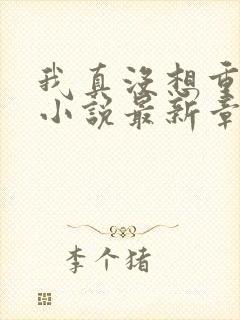 我真没想重
小说最新章
李个猪